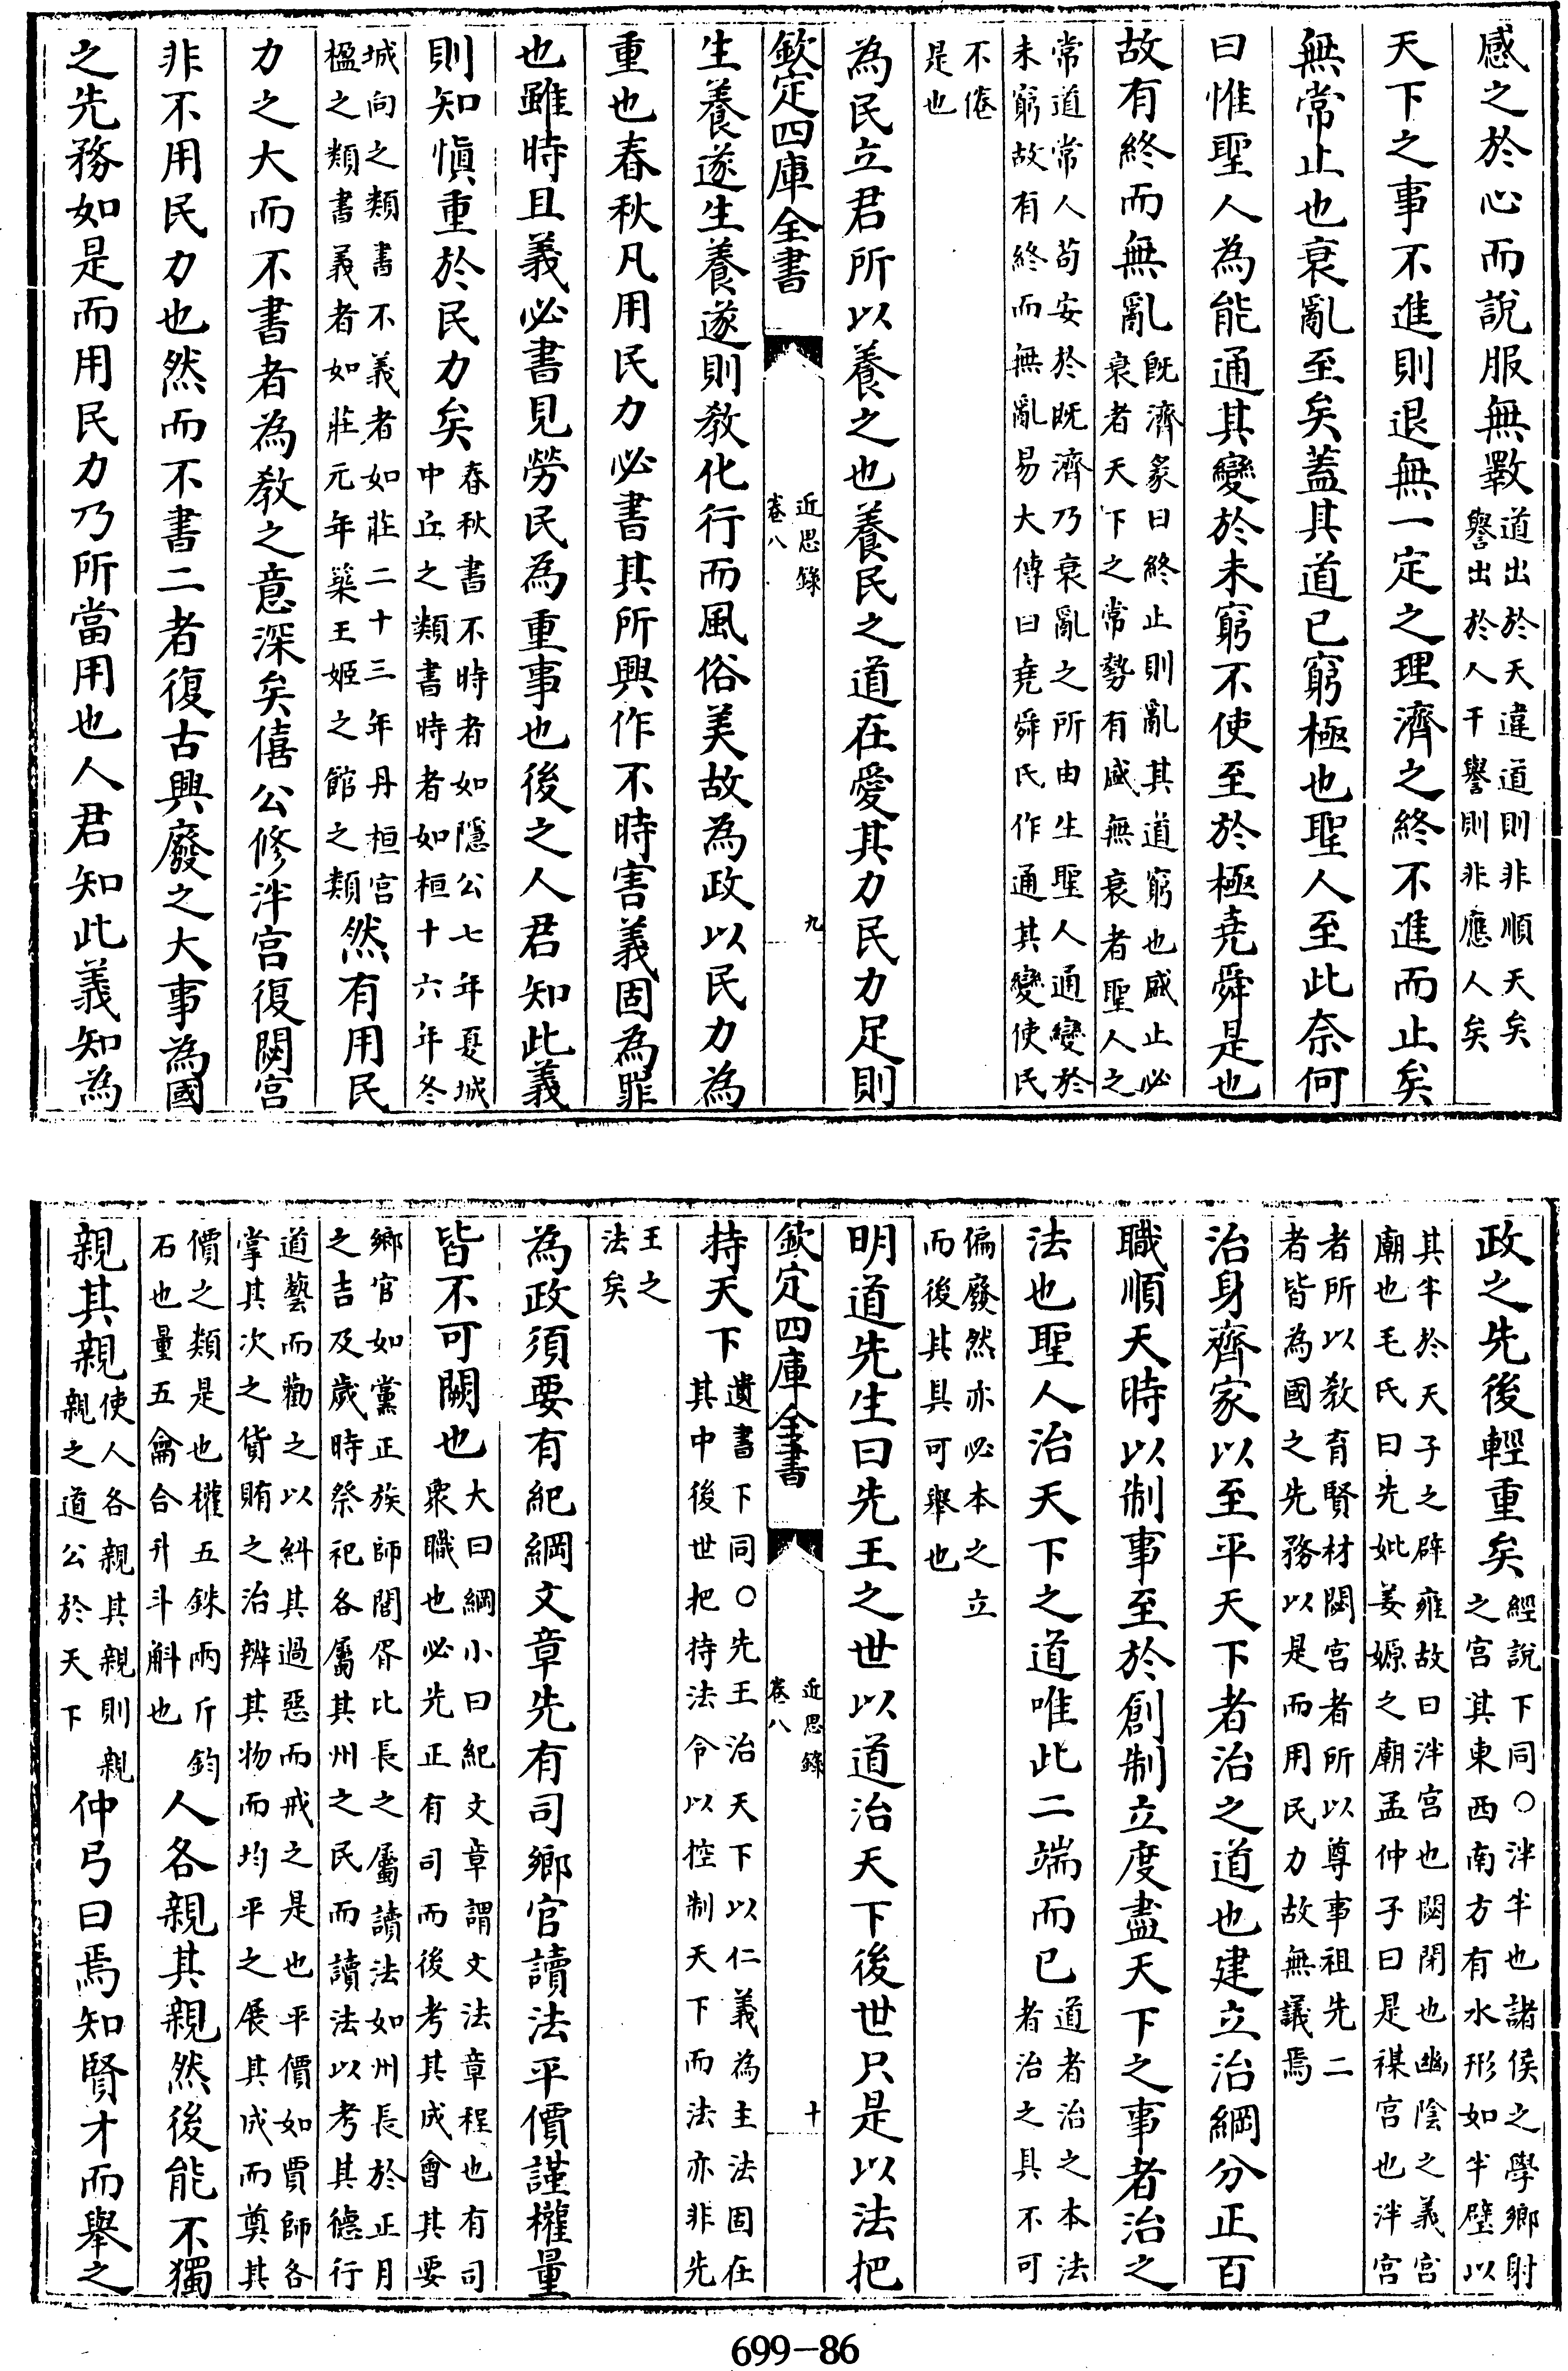 感之於心而說服無斁道出於天違道則非順天矣譽出於人干譽則非應人矣
天下之事不進則退無一定之理濟之終不進而止矣
無常止也衰亂至矣蓋其道已窮極也聖人至此奈何
曰惟聖人為能通其變於未窮不使至於極堯舜是也
故有終而無亂既濟彖曰終止則亂其道窮也盛止必衰者天下之常勢有盛無衰者聖人之
常道常人苟安於既濟乃衰亂之所由生聖人通變於未窮故有終而無亂易大傳曰堯舜氏作通其變使民
不倦是也
為民立君所以養之也養民之道在愛其力民力足則
欽定四庫全書 近思錄 卷八 九
生養遂生養遂則教化行而風俗美故為政以民力為
重也春秋凡用民力必書其所興作不時害義固為罪
也雖時且義必書見勞民為重事也後之人君知此義
則知慎重於民力矣春秋書不時者如隱公七年夏城中丘之類書時者如桓十六年冬
城向之類書不義者如莊二十三年丹桓宮楹之類書義者如莊元年築王姬之館之類然有用民
力之大而不書者為教之意深矣僖公修泮宮復閟宮
非不用民力也然而不書二者復古興廢之大事為國
之先務如是而用民力乃所當用也人君知此義知為
政之先後輕重矣經說下同○泮半也諸侯之學鄉射之宮其東西南方有水形如半璧以
其半於天子之辟雍故曰泮宮也閟閉也幽陰之義宮廟也毛氏曰先妣姜嫄之廟孟仲子曰是禖宮也泮宮
者所以教育賢材閟宮者所以尊事祖先二者皆為國之先務以是而用民力故無議焉
治身齊家以至平天下者治之道也建立治綱分正百
職順天時以制事至於創制立度盡天下之事者治之
法也聖人治天下之道唯此二端而已道者治之本法者治之具不可
偏廢然亦必本之立而後其具可舉也
明道先生曰先王之世以道治天下後世只是以法把
欽定四庫全書 近思錄 卷八 十
持天下遺書下同○先王治天下以仁義為主法固在其中後世把持法令以控制天下而法亦非先
王之法矣
為政須要有紀綱文章先有司鄉官讀法平價謹權量
皆不可闕也大曰綱小曰紀文章謂文法章程也有司衆職也必先正有司而後考其成會其要
鄉官如黨正族師閭胥比長之屬讀法如州長於正月之吉及歲時祭祀各屬其州之民而讀法以考其德行
道藝而勸之以糾其過惡而戒之是也平價如賈師各掌其次之貨賄之治辨其物而均平之展其成而奠其
價之類是也權五銖兩斤鈞石也量五龠合升斗斛也人各親其親然後能不獨
親其親使人各親其親則親親之道公於天下仲弓曰焉知賢才而舉之
699-86